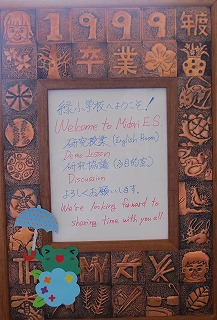 1999年度
卒業
緑小学校へようこそ!
Welcome to Midori E.S
研究授業 (English Room)
Demo Lesson
研究協議 (多目的室)
Discussion
よろしくお願いします。
We're looking forward to
sharing time with you all